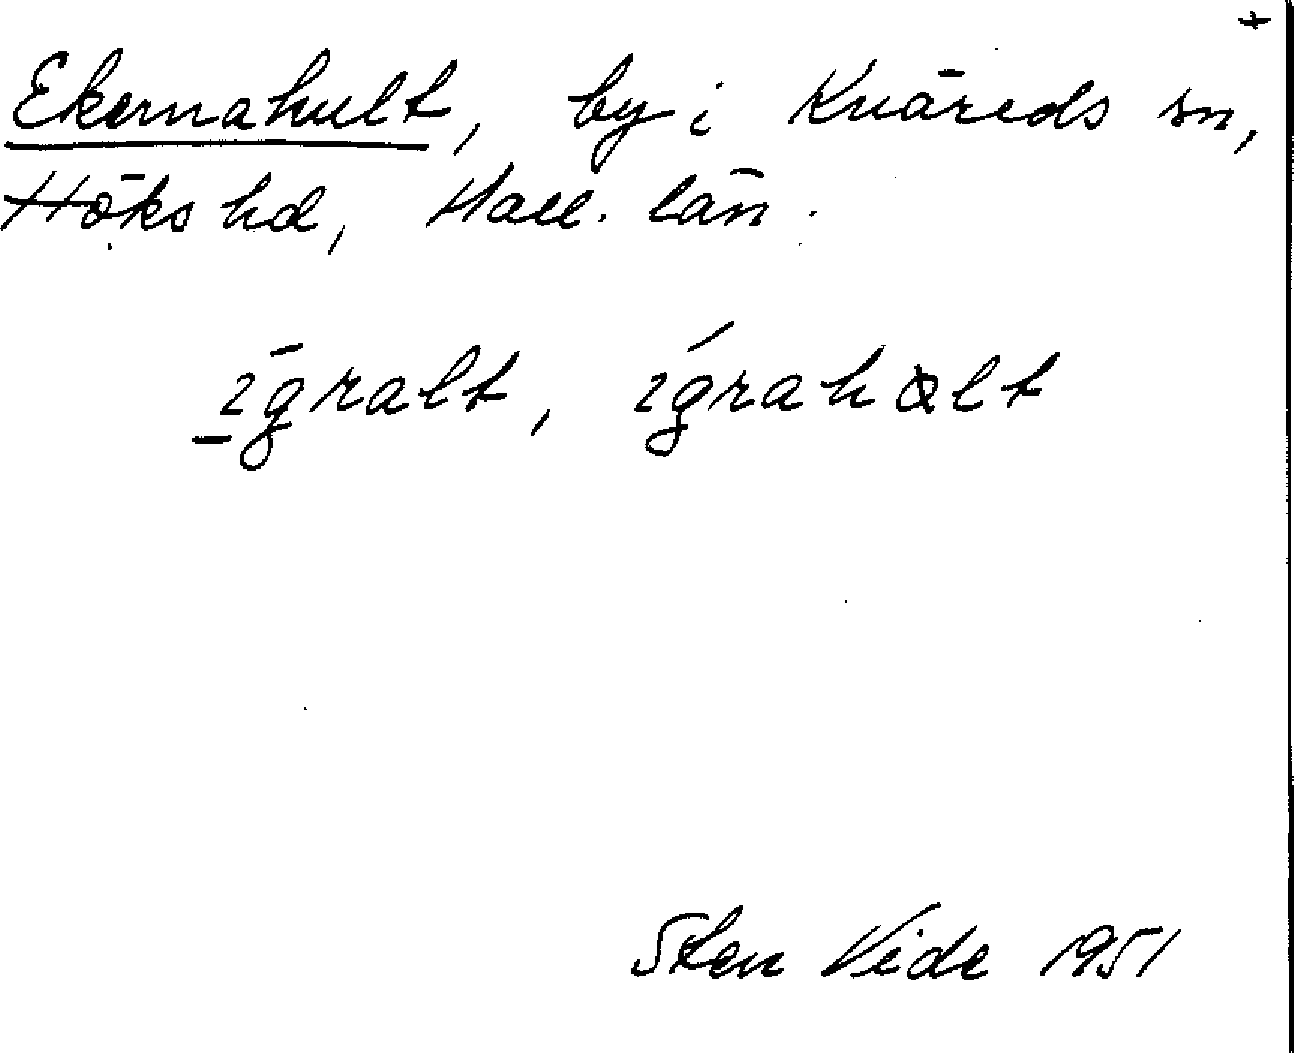 +
Ekernahult, by i Knäreds sn,
Höks hd, Hall. län.
ɪ̄gralt, ɪ́grahɑlt
Sten Vide 1951